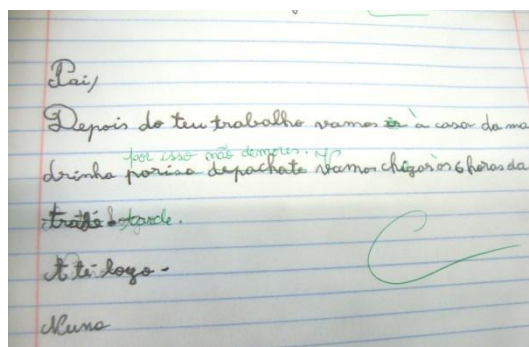 Pai,
Depois do teu trabalho vamos à casa da ma
por isso não demores.
drinha porisa depachate vamos chigar òs 6 horas da
tarde.
Até logo-
Nuno